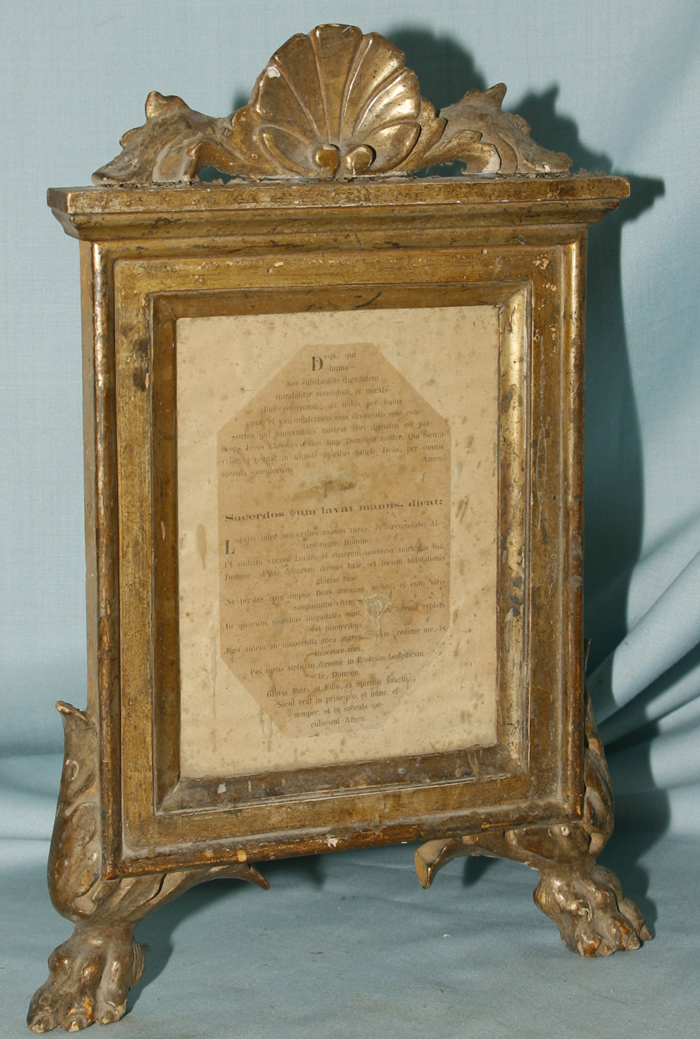 Deus, qui
huma-
nae substantiae dignitatem
mirabiliter condidisti, et mirabi-
lius reformasti: da nobis per hujus
aquae et vini mysterium, ejus divinitatis esse con-
sortes qui humanitatis nostrae fieri dignatus est par-
ticeps Jesus Christus Filius tuus Dominus noster. Qui tecum
vivit et regnat in unitate Spiritus Sancti Deus, per omnia
saecula saeculorum. Amen.
Sacerdos cum lavat manus, dicat:
Lavabo inter innocentes manus meas, et circumdabo Al-
tare tuum, Domine.
Ut audiam vocem laudis, et enarrem universa mirabilia tua.
Domine, dilexi decorem domus tuae, et locum habitationis
gloriae tuae.
Ne perdas cum impiis Deus animam meam, et cum viris
sanguinum vitam
In quorum manibus iniquitates sunt repleta
est muneribus.
Ego autem in innocentia mea ingres redime me, et
miserere mei.
Pes meus stetit in directo: in Ecclesiis benedicam
te, Domine.
Gloria Patri, et Filio, et Spiritui Sancto.
Sicut erat in principio, et nunc, et
semper, et in saecula sae-
culorum. Amen.